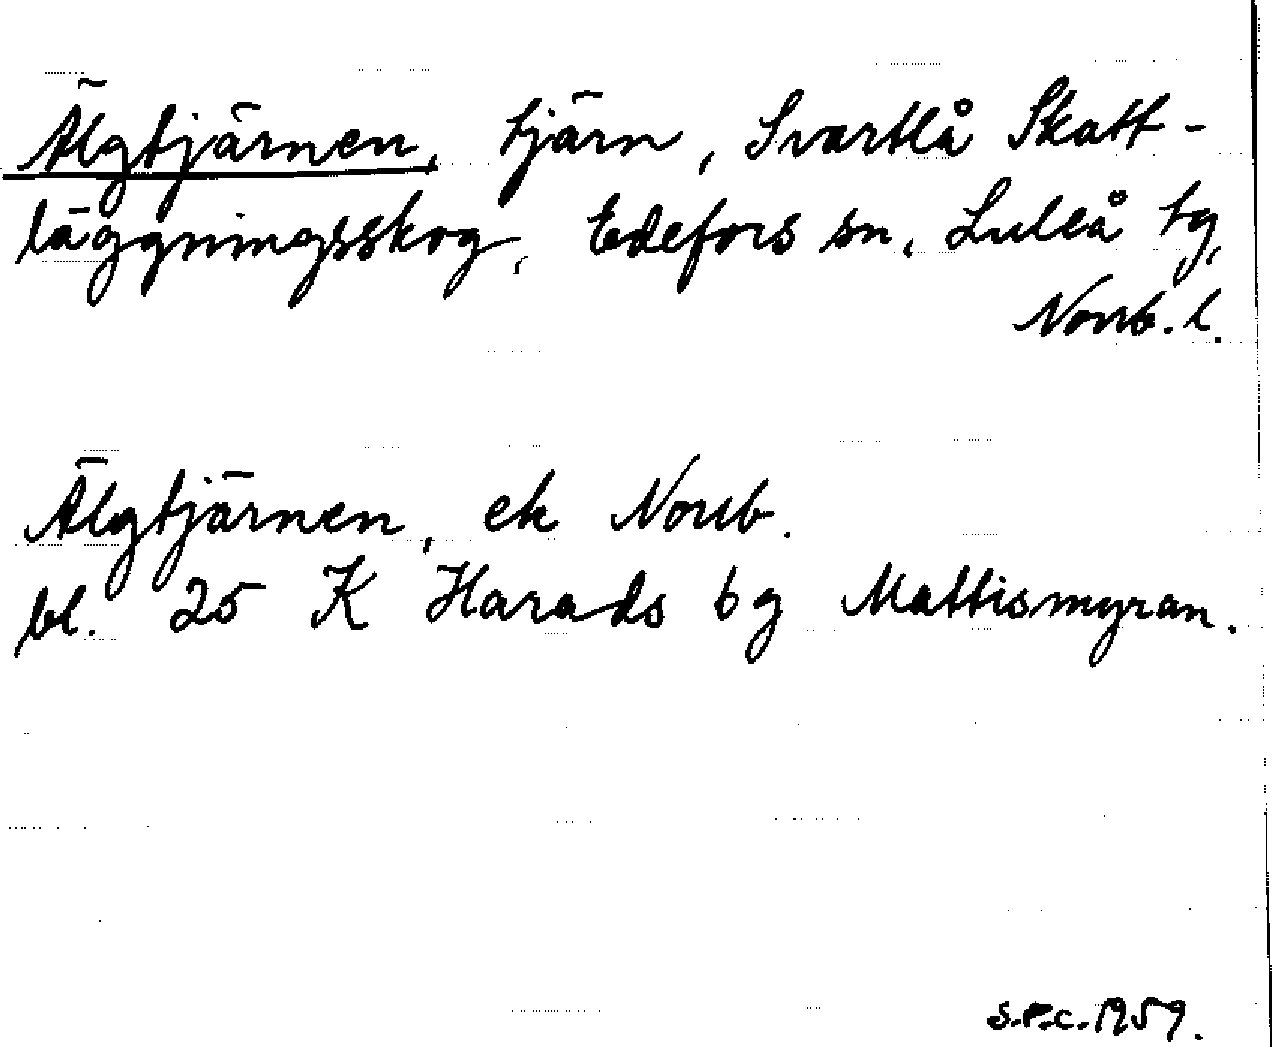 Älgtjärnen, tjärn, Svartlå Skatt-
läggningsskog, Edefors sn, Luleå tg,
Norrb. l.
Älgtjärnen, ek Norrb.
bl. 25 K Harads bg Mattismyran.
S.P.C. 1959.